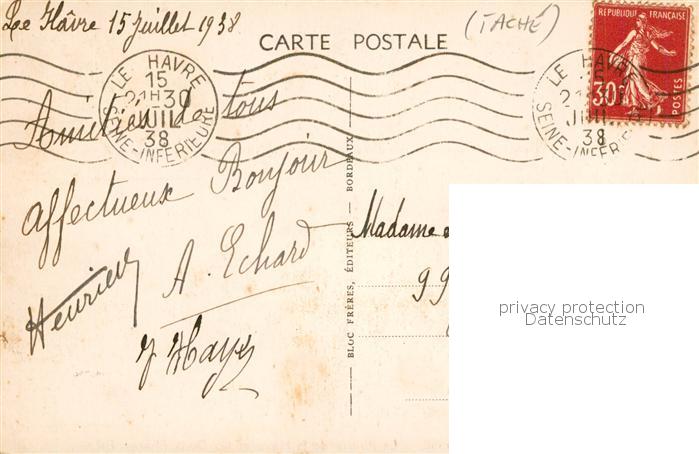 Le Hâvre 15 Juillet 1938
CARTE POSTALE
(TACHÉ)
RÉPUBLIQUE FRANÇAISE
30c
POSTES
LE HAVRE
15
21H30
JUIL
38
SEINE-INFERIEURE
LE HAVRE
15
21
JUIL
38
SEINE-INFER
Amitiés de tous
Affectueux Bonjour
A. Echard
Henriette
BLOC FRÈRES, ÉDITEURS - BORDEAUX
Madame
99
privacy protection
Datenschutz